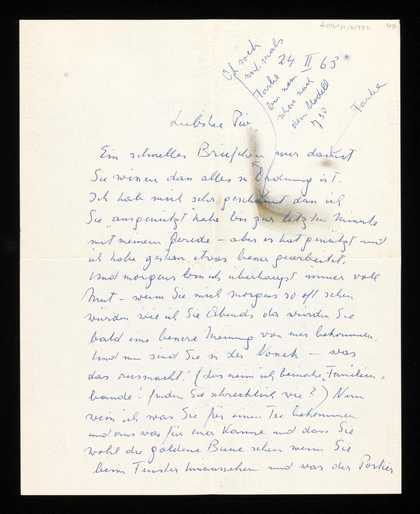 24 II 60
Och noch
mal
Danke
schon nach
dem Modell
7 30
Danke
Liebster Piv
Ein schnelles Briefchen nur damit
Sie wissen dass alles in Ordnung ist.
Ich habe mich sehr geschämt dass ich
Sie ausgenützt habe bis zur letzten Minute
mit meinem Gerede – aber es hat genützt und
ich habe gestern etwas besser gearbeitet.
Und morgens bin ich überhaupt immer voll
Mut – wenn Sie mich morgens so oft sehen
würden wie ich Sie Abends da würden Sie
bald eine bessere Meinung von mir bekommen.
Und nun sind Sie in der – was
das ausmacht! (das nenn ich beinahe „Familien-
bande“ finden Sie schrecklich wie?) Nun
weiss ich was Sie für einen Tee bekommen
und aus was für einer Kanne und dass Sie
wohl die goldene Biene sehen wenn Sie
beim Fenster hinausschauen und was der Portier